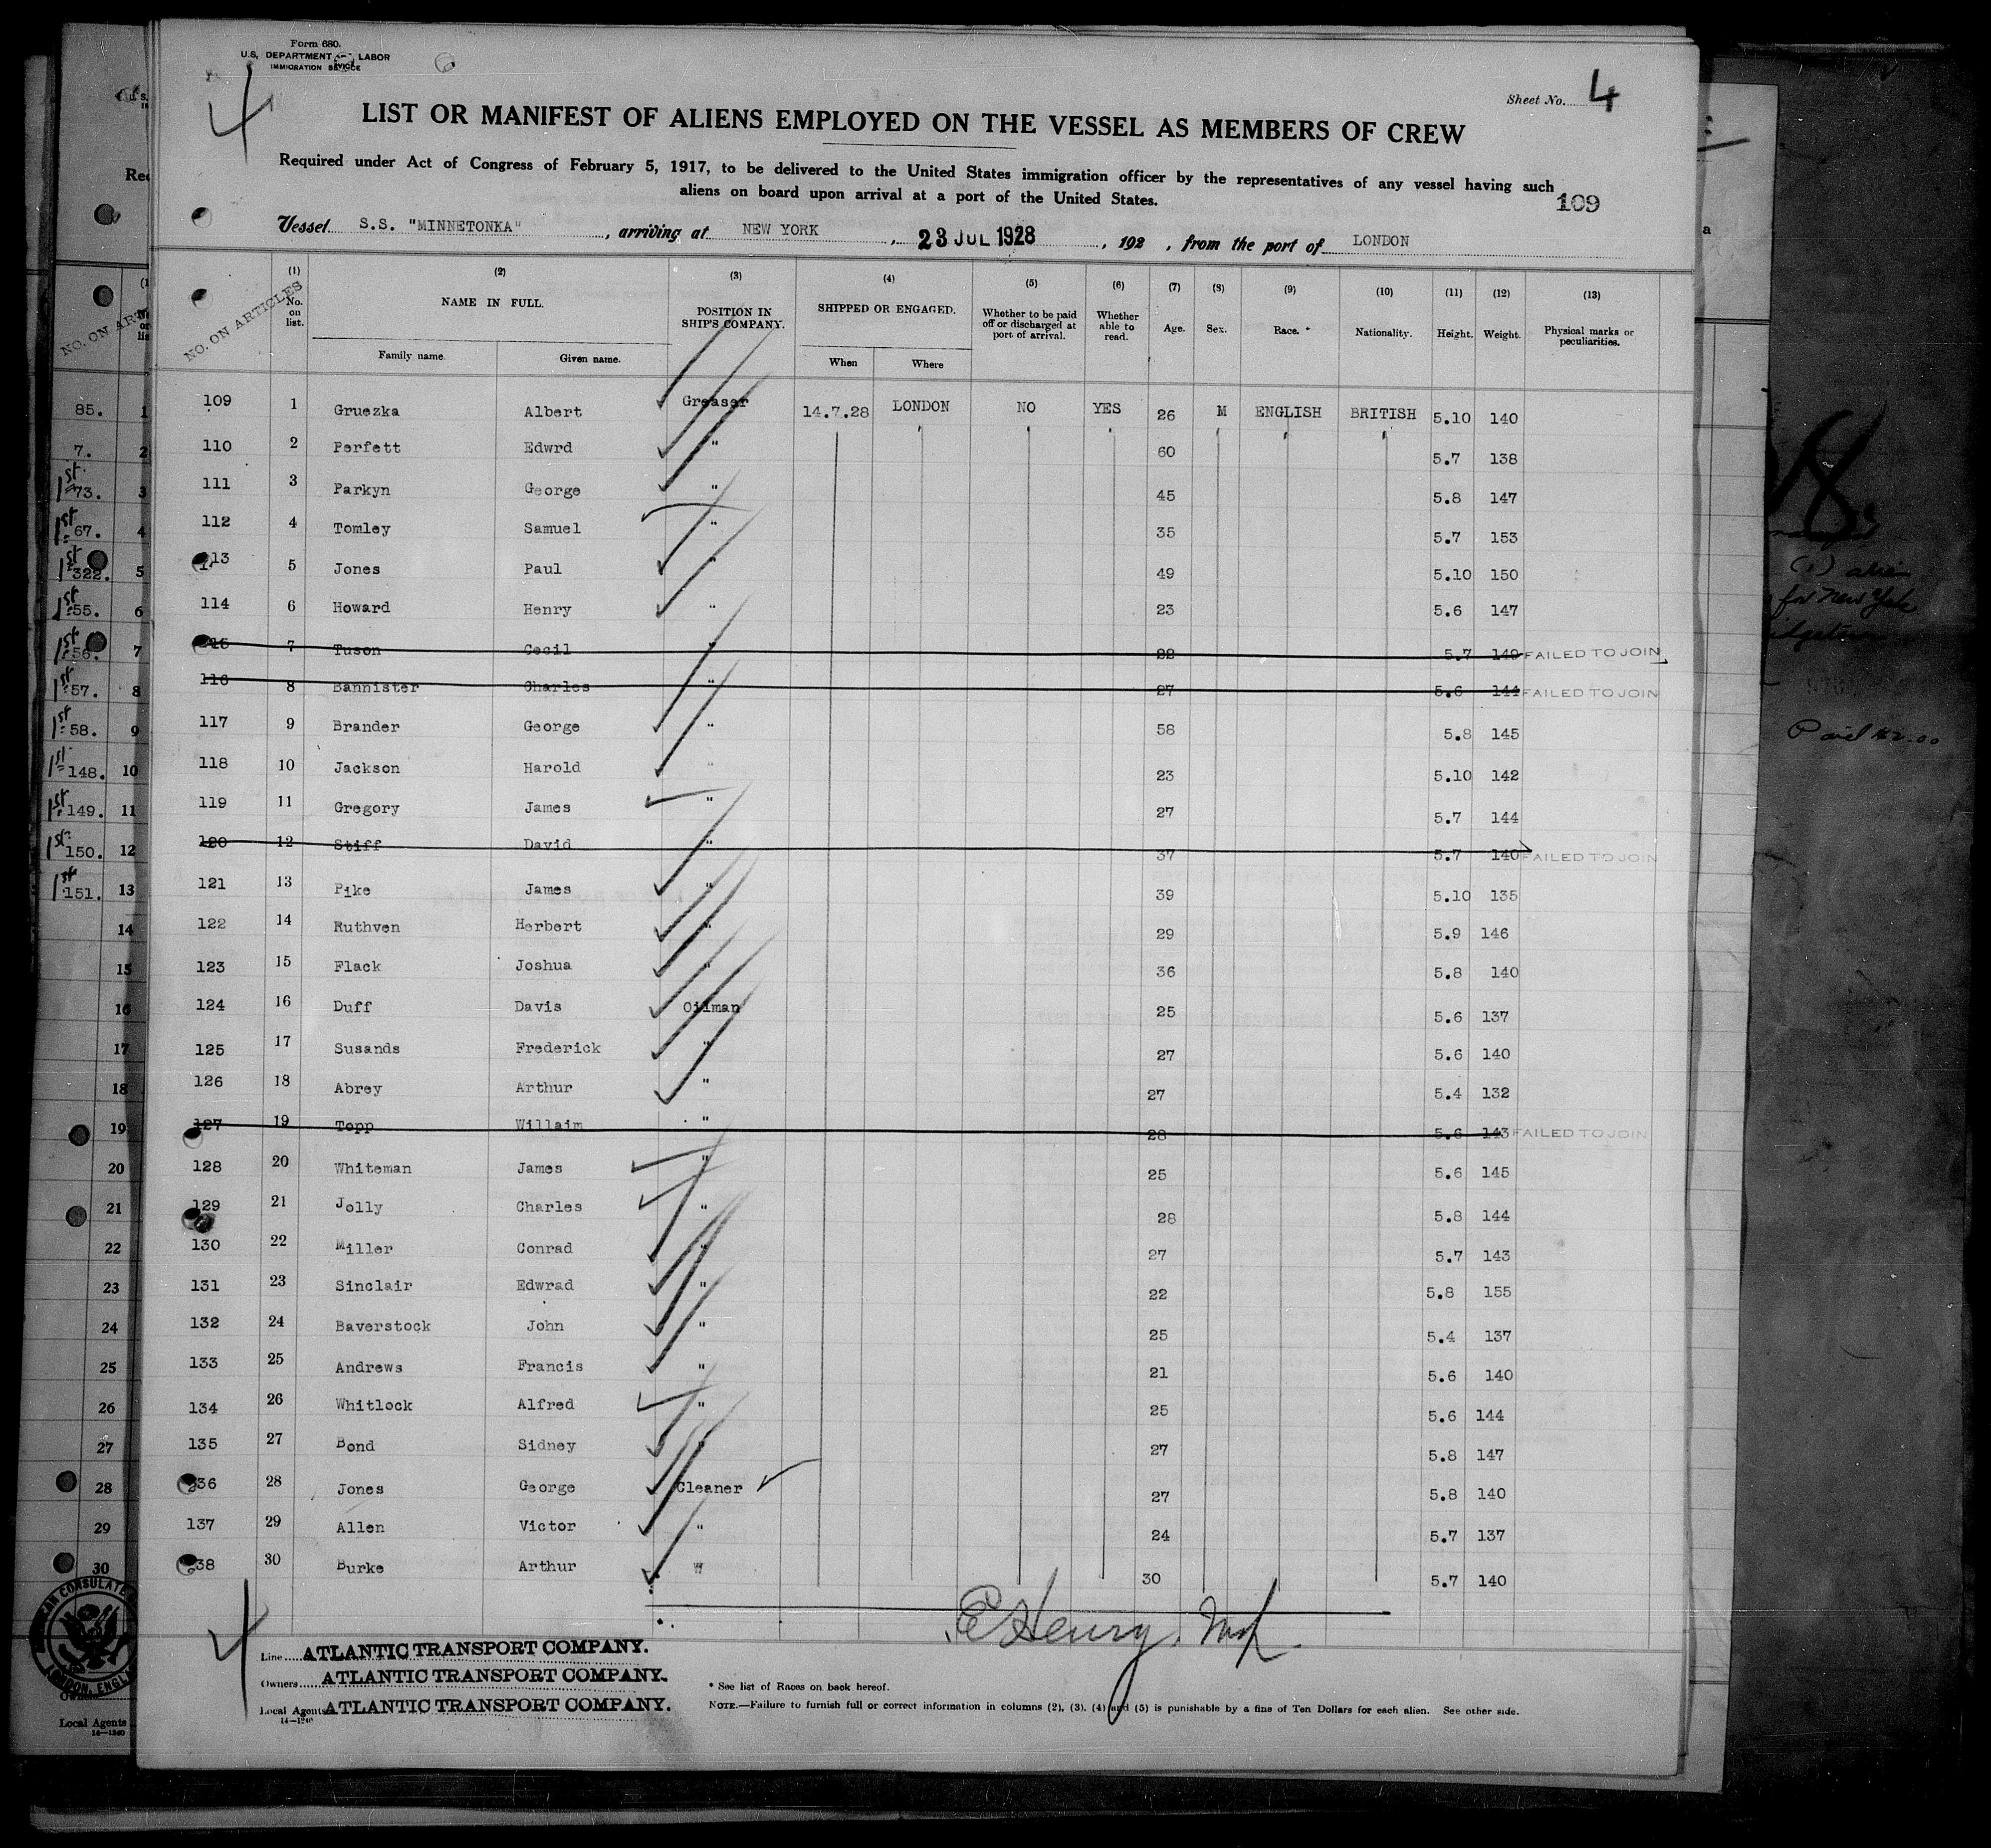 Form 680.
U.S. DEPARTMENT OF LABOR
IMMIGRATION SERVICE
4
Sheet No. 4
LIST OR MANIFEST OF ALIENS EMPLOYED ON THE VESSEL AS MEMBERS OF CREW
Required under Act of Congress of February 5, 1917, to be delivered to the United States immigration officer by the representatives of any vessel having such
aliens on board upon arrival at a port of the United States.
109
Vessel S.S. "MINNETONKA" , arriving at NEW YORK , 23 JUL 1928 , 192 , from the port of LONDON
NO. ON ARTICLES (1) No. on list. (2) NAME IN FULL. Family name. Given name. (3) POSITION IN SHIP'S COMPANY. (4) SHIPPED OR ENGAGED. When Where (5) Whether to be paid off or discharged at port of arrival. (6) Whether able to read. (7) Age. (8) Sex. (9) Race.* (10) Nationality. (11) Height. (12) Weight. (13) Physical marks or peculiarities.
109 1 Gruezka Albert Greaser 14.7.28 LONDON NO YES 26 M ENGLISH BRITISH 5.10 140
110 2 Perfett Edwrd " ' ' ' ' ' ' 60 5.7 138
111 3 Parkyn George " 45 5.8 147
112 4 Tomley Samuel " 35 5.7 153
113 5 Jones Paul " 49 5.10 150
114 6 Howard Henry " 23 5.6 147
115 7 Tuson Cecil " 22 5.7 149 FAILED TO JOIN
116 8 Bannister Charles " 27 5.6 144 FAILED TO JOIN
117 9 Brander George " 58 5.8 145
118 10 Jackson Harold " 23 5.10 142
119 11 Gregory James " 27 5.7 144
120 12 Stiff David " 37 5.7 140 FAILED TO JOIN
121 13 Pike James " 39 5.10 135
122 14 Ruthven Herbert " 29 5.9 146
123 15 Flack Joshua " 36 5.8 140
124 16 Duff Davis Oilman 25 5.6 137
125 17 Susands Frederick " 27 5.6 140
126 18 Abrey Arthur " 27 5.4 132
127 19 Topp Willaim " 28 5.6 143 FAILED TO JOIN
128 20 Whiteman James " 25 5.6 145
129 21 Jolly Charles " 28 5.8 144
130 22 Miller Conrad " 27 5.7 143
131 23 Sinclair Edwrad " 22 5.8 155
132 24 Baverstock John " 25 5.4 137
133 25 Andrews Francis " 21 5.6 140
134 26 Whitlock Alfred " 25 5.6 144
135 27 Bond Sidney " 27 5.8 147
136 28 Jones George Cleaner 27 5.8 140
137 29 Allen Victor " 24 5.7 137
138 30 Burke Arthur W 30 5.7 140
E Henry
4
Line ATLANTIC TRANSPORT COMPANY.
Owners ATLANTIC TRANSPORT COMPANY.
Local Agents ATLANTIC TRANSPORT COMPANY.
14—1240
* See list of Races on back hereof.
NOTE.—Failure to furnish full or correct information in columns (2), (3), (4) and (5) is punishable by a fine of Ten Dollars for each alien. See other side.
85. 1
7. 2
1st 73. 3
1st 67. 4
1st 322. 5
1st 55. 6
1st 56. 7
1st 57. 8
1st 58. 9
1st 148. 10
1st 149. 11
1st 150. 12
1st 151. 13
14
15
16
17
18
19
20
21
22
23
24
25
26
27
28
29
30
Local Agents
14—1240
(1) alien
for New York
Paid $2.00